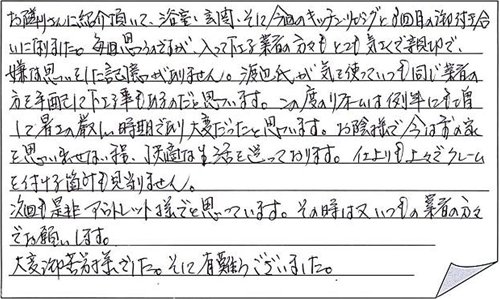 お隣りさんに紹介頂いて、浴室・玄関・そして今回のキッチンリビングと4回目の御付き合
いに何りました。毎回思うのですが、入って下さる業者の方々もとても気さくで親切で、
嫌な思いをした記憶がありません。渡辺氏が気を使っていつも同じ業者の
方を手配して下さる事もあるのだと思います。この度のリフォームは例年にも増
して暑さの厳しい時期であり大変だったと思います。お陰様で今は前の家
を思い出せない程、快適な生活を送っております。仕上りも上々でクレーム
を付ける箇所も見当りません。
次回も是非アウトレット様でと思っています。その時は又いつもの業者の方々
でお願いします。
大変御苦労様でした。そして有難うございました。